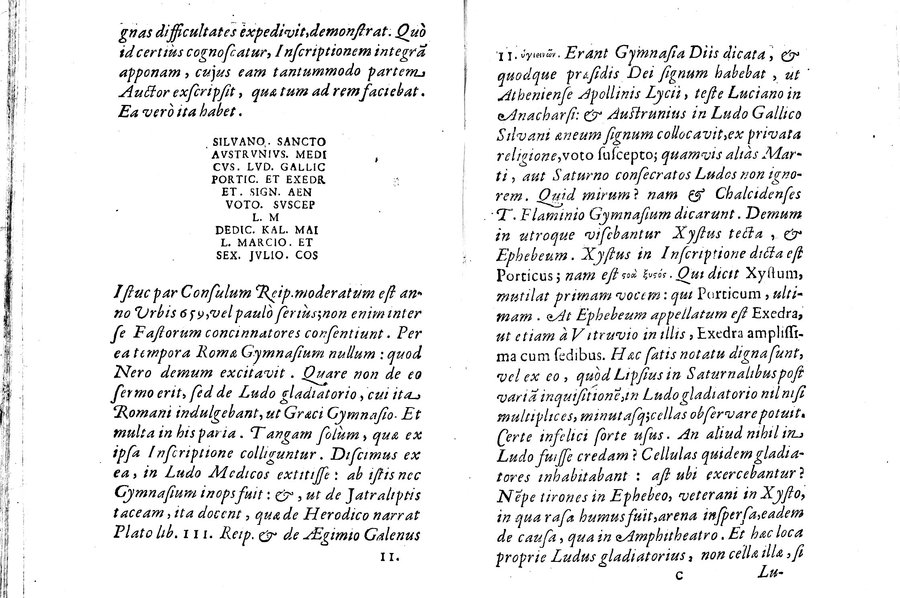 gnas difficultates expedivit, demonstrat. Quò
id certiùs cognoscatur, Inscriptionem integrã
apponam, cujus eam tantummodo partem
Auctor exscripsit, quæ tum ad rem faciebat.
Ea verò ita habet.
SILVANO. SANCTO
AVSTRVNIVS. MEDI
CVS. LVD. GALLIC
PORTIC. ET EXEDR
ET. SIGN. AEN
VOTO. SVSCEP
L. M
DEDIC. KAL. MAI
L. MARCIO. ET
SEX. JVLIO. COS
Istuc par Consulum Reip. moderatum est an-
no Urbis 659, vel paulò seriùs; non enim inter
se Fastorum concinnatores consentiunt. Per
ea tempora Romæ Gymnasium nullum: quod
Nero demum excitavit. Quare non de eo
sermo erit, sed de Ludo gladiatorio, cui ita
Romani indulgebant, ut Græci Gymnasio. Et
multa in his paria. Tangam solùm, quæ ex
ipsa Inscriptione colliguntur. Discimus ex
ea, in Ludo Medicos extitisse: ab istis nec
Gymnasium inops fuit: &, ut de Jatraliptis
taceam, ita docent, quæ de Herodico narrat
Plato lib. III. Reip. & de Ægimio Galenus
II.
II. ὑγιεινῶν. Erant Gymnasia Diis dicata, &
quodque præsidis Dei signum habebat, ut
Atheniense Apollinis Lycii, teste Luciano in
Anacharsi: & Austrunius in Ludo Gallico
Silvani æneum signum collocavit, ex privata
religione, voto suscepto; quamvis aliàs Mar-
ti, aut Saturno consecratos Ludos non igno-
rem. Quid mirum? nam & Chalcidenses
T. Flaminio Gymnasium dicarunt. Demum
in utroque visebantur Xystus tecta, &
Ephebeum. Xystus in Inscriptione dicta est
Porticus; nam est ξυστός. Qui dicit Xystum,
mutilat primam vocem: qui Porticum, ulti-
mam. At Ephebeum appellatum est Exedra,
ut etiam à Vitruvio in illis, Exedra amplissi-
ma cum sedibus. Hæc satis notatu digna sunt,
vel ex eo, quòd Lipsius in Saturnalibus post
variã inquisitionẽ, in Ludo gladiatorio nil nisi
multiplices, minutasq; cellas observare potuit.
Certe infelici sorte usus. An aliud nihil in
Ludo fuisse credam? Cellulas quidem gladia-
tores inhabitabant: ast ubi exercebantur?
Nẽpe tirones in Ephebeo, veterani in Xysto,
in qua rasa humus fuit, arena inspersa, eadem
de causa, qua in Amphitheatro. Et hæc loca
proprie Ludus gladiatorius, non cellæ illæ, si
C
Lu-